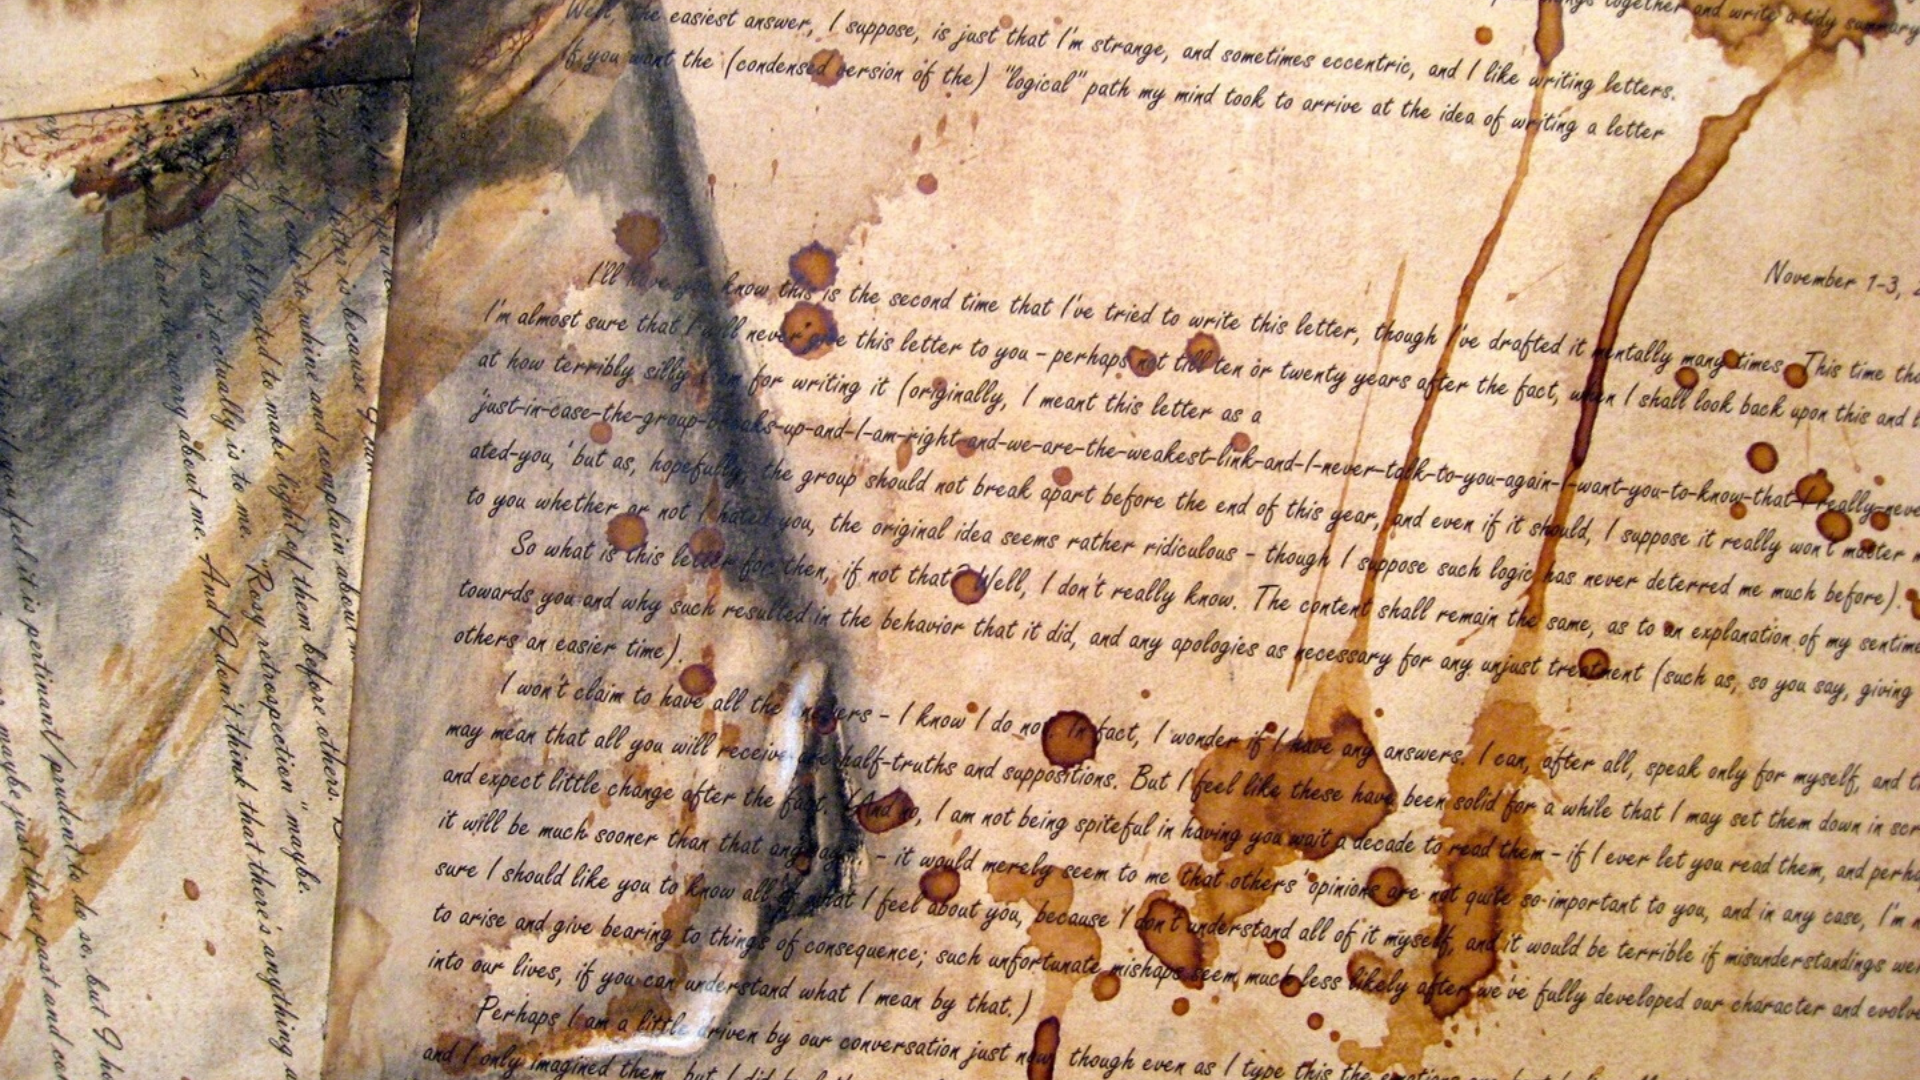 things together and write a tidy summary
Well, the easiest answer, I suppose, is just that I'm strange, and sometimes eccentric, and I like writing letters.
If you want the (condensed version of the) "logical" path my mind took to arrive at the idea of writing a letter
November 1-3,
I'll have you know this is the second time that I've tried to write this letter, though I've drafted it mentally many times. This time
I'm almost sure that I will never give this letter to you - perhaps not till ten or twenty years after the fact, when I shall look back upon this and
at how terribly silly I am for writing it (originally, I meant this letter as a
'just-in-case-the-group-breaks-up-and-I-am-right-and-we-are-the-weakest-link-and-I-never-talk-to-you-again-I-want-you-to-know-that-I-really-never
ated-you,' but as, hopefully, the group should not break apart before the end of this year, and even if it should, I suppose it really won't matter
to you whether or not I hated you, the original idea seems rather ridiculous - though I suppose such logic has never deterred me much before).
So what is this letter for then, if not that? Well, I don't really know. The content shall remain the same, as to an explanation of my
towards you and why such resulted in the behavior that it did, and any apologies as necessary for any unjust treatment (such as, so you say, giving
others an easier time).
I won't claim to have all the answers - I know I do not. In fact, I wonder if I have any answers. I can, after all, speak only for myself, and
may mean that all you will receive are half-truths and suppositions. But I feel like these have been solid for a while that I may set them down in
and expect little change after the fact. (And no, I am not being spiteful in having you wait a decade to read them - if I ever let you read them, and
it will be much sooner than that anyways. - it would merely seem to me that others' opinions are not quite so important to you, and in any case, I'm
sure I should like you to know all of what I feel about you, because I don't understand all of it myself, and it would be terrible if misunderstandings
to arise and give bearing to things of consequence; such unfortunate mishaps seem much less likely after we've fully developed our character and
into our lives, if you can understand what I mean by that.)
Perhaps I am a little driven by our conversation just now, though even as I type this the emotions
and I only imagined them, but I did
letter is because I am
if able to whine and complain about
I feel obligated to make light of them before others.
as it actually is to me. "Rosy retrospection" maybe.
about me. And I don't think that there's anything
feel it is pertinant/prudent to do so, but I
maybe just these past and